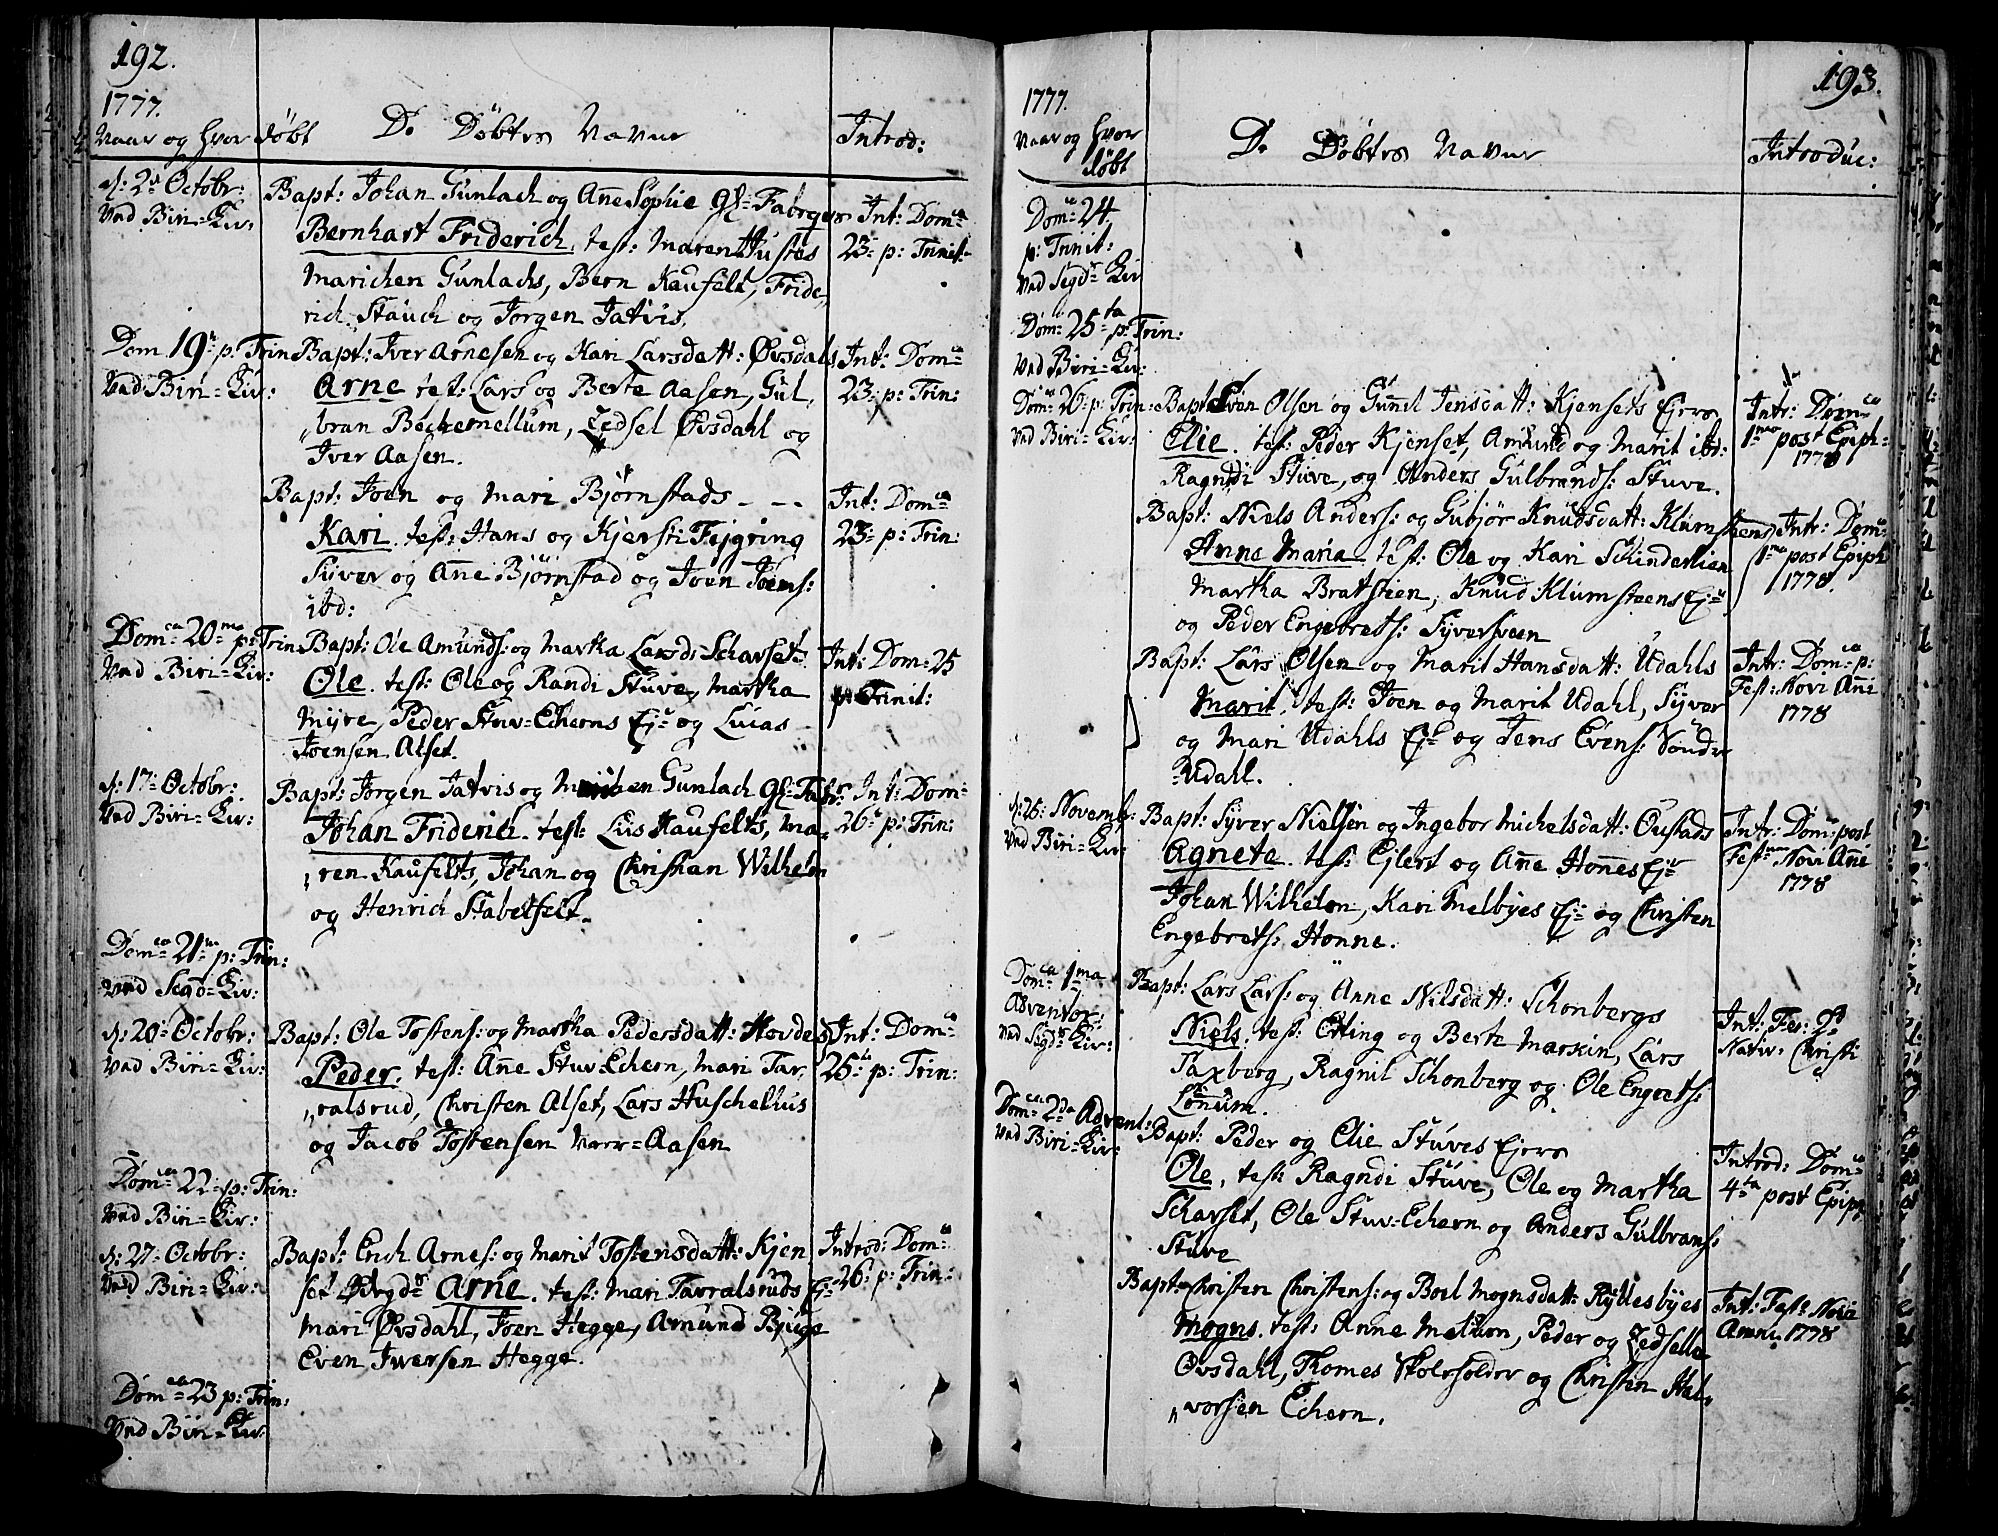 192.
1777.
Naar og hvor døbt
De Döbtes Navne
Introd:
d: 2 Octobr:
Ved Biri=Kir:
Bapt: Johan Gunlach og Anne Sophie Gl=Fabrqes
Bernhart Friderich. test: Maren Justes
Marichen Gunlachs, Bern Kaufelt, Fride,
rich Stauch og Jørgen Jatvis.
Int: Domca
23 p: Trinit:
Dom 19 p: Trin
Ved Biri=Kir:
Bapt: Iver Arnesen og Kari Larsdatt: Øvsdals
Arne test: Lars og Berte Aasen, Gul,
,,bran Böckemellum, Zedsel Øvsdahl og
Iver Aasen.
Int: Domca
23: p: Trin:
Bapt: Joen og Mari Bjørnstads - - -
Kari. test: Hans og Kjersti Fijgring
Syver og Anne Bjørnstad og Joen Joens:
ibd:
Int: Domca
23: p: Trin:
Domca 20ma p: Trin
Ved Biri=Kir:
Bapt: Ole Amunds: og Martha Larsd: Scharset
Ole. test: Ole og Randi Stuve, Martha
Myre, Peder Stuv=Echerns Ejr og Lucas
Joensen Alset.
Int: Dom: 25
p: Trinit:
d: 17 Octobr:
Ved Biri=Kir:
Bapt: Jørgen Jatvis og Marichen Gunlach Gl=Fabr:
Johan Friderich. test: Lus Kaufelts, Ma,
,,ren Kaufelts, Johan og Christian Wilhelm
og Henrich Stabelfelt.
Int: Dom=
26 p: Trin:
Domca 21ma p: Trin:
Ved Segd=Kir:
d: 20 Octobr:
Ved Biri=Kir:
Bapt: Ole Tostens: og Martha Pedersdatt: Hovdes
Peder. test: Anne Stuv=Echern, Mari Tar,
,,ralsrud, Christen Alset, Lars Huschelhus
og Jacob Tostensen Værr=Aasen
Int: Domca
25 p: Trin:
Domca 22 p: Trin:
Ved Biri=Kir:
d: 27 Octobr:
Ved Biri=Kir:
Bapt: Erich Arnes: og Marit Tostensdatt: Kjen
set Ødegdr Arne. test: Mari Tarralsruds Ejr
Mari Øvsdahl, Joen Hegge, Amund Bjuge
Even Iversen Hegge.
Introd: Domca
26 p: Trin:
Domca 23 p: Trin:
Ved Biri=Kir:
193.
1777.
Naar og hvor
døbt
De Döbtes Navne
Introduc:
Domca 24
p: Trinit:
Ved Segdr Kir
Dom: 25ta p: Trin:
Ved Biri=Kir:
Domca 26 p: Trin:
Ved Biri=Kir:
Bapt: Even Olsen og Gunnil Jensdatt: Kjensets Ejere
Elie. test: Peder Kjenset, Amund og Marit ibd:
Ragndi Stuve, og Anders Gulbrands: Stuve.
Intr: Domca
1ma post Epiph=
1778
Bapt: Niels Anders: og Gubjør Knudsdatt: Klumsteens
Anne Maria test: Ole og Kari Schinderlien
Martha Bratstien, Knud Klumsteens Ejr
og Peder Engebrets: Syversveen
Intr: Domca
1ma post Epiph
1778.
Bapt: Lars Olsen og Marit Hansdatt: Udahls
Marit. test: Joen og Marit Udahl, Syver
og Mari Udahls Ejr og Jens Evens: Nordr
=Udahl.
Intr: Domca p:
Fest: Novi Anni
1778
d: 26 Novembr:
Ved Biri=Kir:
Bapt: Syver Nielsen og Ingebor Michelsdatt: Oustads
Agnete. test: Ejlert og Anne Honnes Ejr
Johan Wilhelm, Kari Melbyes Ejr og Christen
Engebrets: Honne.
Intr: Domca post
Festum Novi Anni
1778
Domca 1ma
Adventor:
Ved Segdr Kir:
Bapt: Lars Lars: og Anne Nilsdatt: Schonbergs
Niels. test: Etting og Berte Marskin, Lars
Taxberg, Ragnil Schonberg og Ole Engrets:
Lønnum.
Int: Fer: 2da
Nativ: Christi
Domca 2da Advent:
Ved Biri=Kir:
Bapt: Peder og Elie Stuves Ejere
Ole, test: Ragndi Stuve, Ole og Martha
Scharset, Ole Stuv=Echern og Anders Gulbrans:
Stuve
Introd: Domca
4ta post Epiph
Bapt: Christen Christens: og Boel Mognsdatt: Ryllesbyes
Mogns. test: Anne Melum, Peder og Zedselle
Øvsdahl, Thomes Skoleholder og Christen Hal,
,,vorsen Echern.
Int: Fest: Novi
Anni 1778